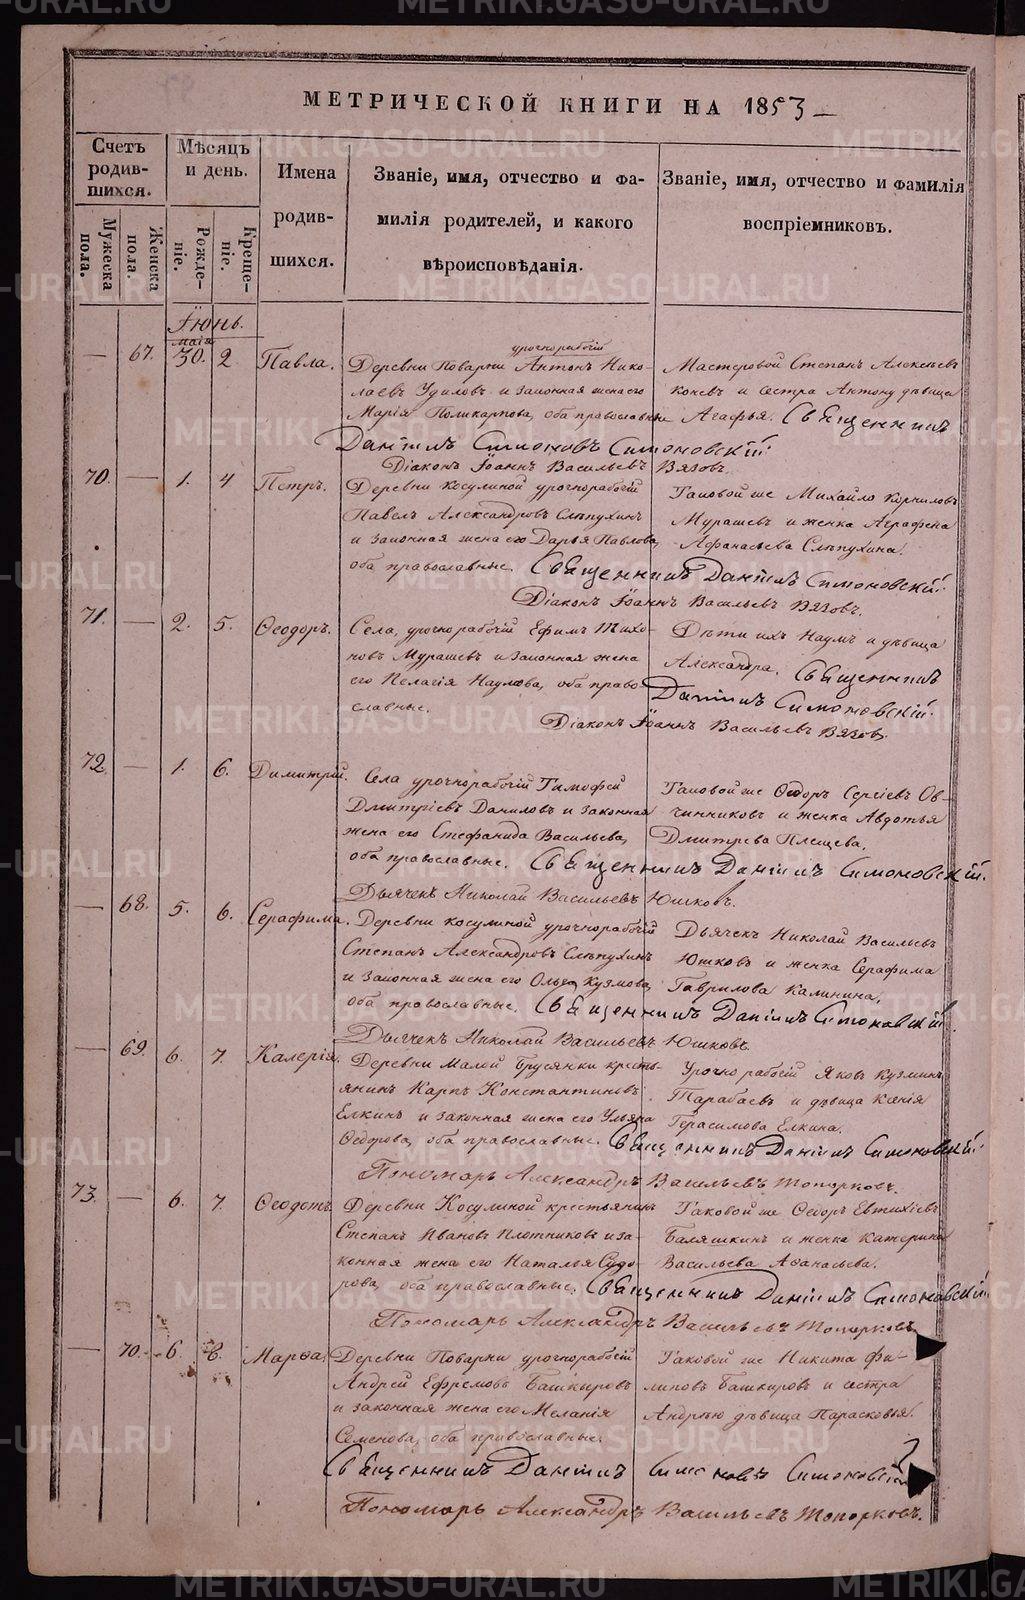 МЕТРИЧЕСКОЙ КНИГИ НА 1853
Счетъ родив-шихся.
Мужеска пола.
Женска пола.
Мѣсяцъ и день.
Рожде-ніе.
Креще-ніе.
Имена родив-шихся.
Званіе, имя, отчество и фа-
милія родителей, и какого
вѣроисповѣданія.
Званіе, имя, отчество и фамилія
воспріемниковъ.
Іюнь.
маія
— 67. 30. 2 Павла.
урочнорабочій
Деревни Поварни Антонъ Нико-
лаевъ Удиловъ и законная жена его
Марія Поликарпова, оба православные
Мастеровой Степанъ Алексѣевъ
Коневъ и сестра Антону дѣвица
Агафья. Священникъ
Даніилъ Симоновъ Симоновскій.
Діаконъ Іоаннъ Васильевъ Вязовъ.
70. — 1. 4 Петръ.
Деревни Косулиной урочнорабочій
Павелъ Александровъ Слѣпухинъ
и законная жена его Дарья Павлова,
оба православные.
Таковой же Михайло Корниловъ
Мурашевъ и женка Аграфена
Афанасьева Слѣпухина.
Священникъ Даніилъ Симоновскій.
Діаконъ Іоаннъ Васильевъ Вязовъ.
71. — 2. 5. Ѳеодоръ.
Села, урочнорабочій Ефимъ Тихо-
новъ Мурашевъ и законная жена
его Пелагія Наумова, оба право-
славные.
Дѣти ихъ Наумъ и дѣвица
Александра. Священникъ
Даніилъ Симоновскій.
Діаконъ Іоаннъ Васильевъ Вязовъ.
72. — 1. 6. Димитрій.
Села урочнорабочій Тимофей
Дмитріевъ Даниловъ и законная
жена его Стефанида Васильева,
оба православные.
Таковой же Ѳедоръ Сергіевъ Ов-
чинниковъ и женка Авдотья
Дмитрева Плещева.
Священникъ Даніилъ Симоновскій.
Дьячекъ Николай Васильевъ Юшковъ.
— 68. 5. 6. Серафима.
Деревни Косулиной урочнорабочій
Степанъ Александровъ Слѣпухинъ
и законная жена его Ольга Кузмова,
оба православные.
Дьячекъ Николай Васильевъ
Юшковъ и женка Серафима
Гаврилова Калинина.
Священникъ Даніилъ Симоновскій.
Дьячекъ Николай Васильевъ Юшковъ.
— 69. 6. 7. Калерія.
Деревни Малой Брусянки кресть-
янинъ Карпъ Константиновъ
Елкинъ и законная жена его Ульяна
Ѳедорова, оба православные.
Урочнорабочій Яковъ Кузминъ
Тарабаевъ и дѣвица
Герасимова Елкина.
Священникъ Даніилъ Симоновскій.
Пономарь Александръ Васильевъ Топорковъ.
73. — 6. 7. Ѳеодотъ.
Деревни Косулиной крестьянинъ
Степанъ Ивановъ Плотниковъ и за-
конная жена его Наталья Сидо-
рова, оба православные.
Таковой же Ѳедоръ Евтихіевъ
Баляшкинъ и женка Катерина
Васильева Аѳанасьева.
Священникъ Даніилъ Симоновскій.
Пономарь Александръ Васильевъ Топорковъ.
— 70. 6. 8. Марѳа.
Деревни Поварни урочнорабочій
Андрей Ефремовъ Башкировъ
и законная жена его Меланія
Семенова, оба православные.
Таковой же Никита Фи-
липовъ Башкировъ и сестра
Андрѣю дѣвица Парасковья.
Священникъ Даніилъ Симоновъ Симоновскій
Пономарь Александръ Васильевъ Топорковъ.
METRIKI.GASO-URAL.RU